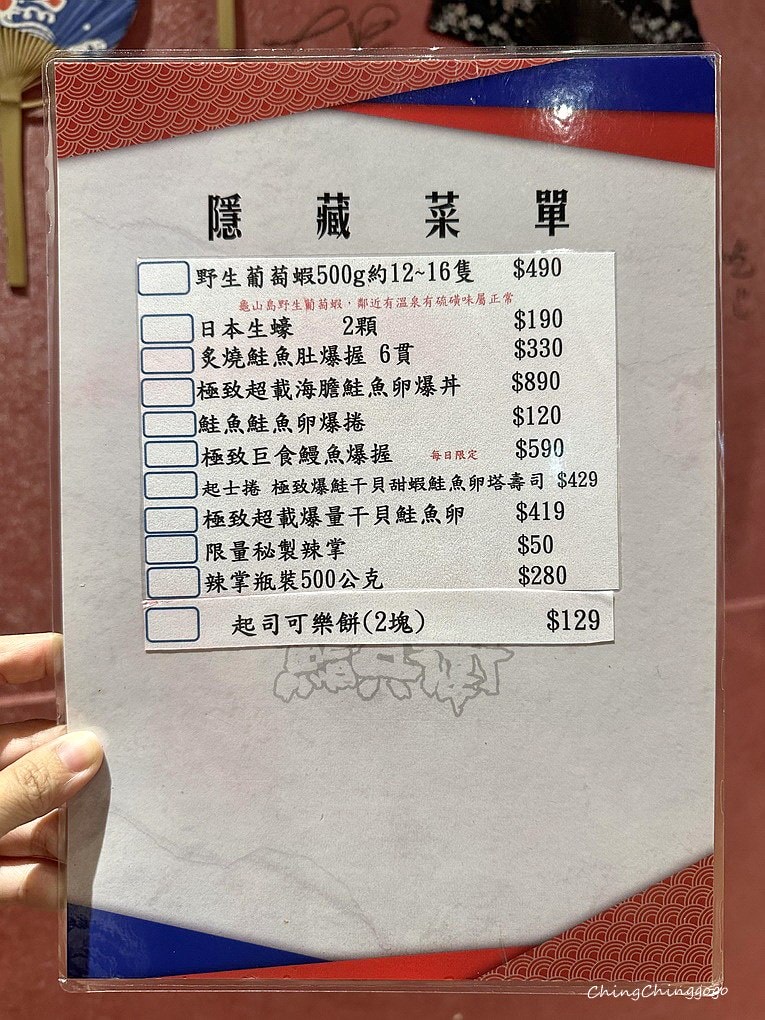 隱藏菜單
野生葡萄蝦500g約12~16隻 $490
龜山島野生葡萄蝦，鄰近有溫泉有硫磺味屬正常
日本生蠔 2顆 $190
炙燒鮭魚肚爆握 6貫 $330
極致超載海膽鮭魚卵爆丼 $890
鮭魚鮭魚卵爆捲 $120
極致巨食鰻魚爆握 每日限定 $590
起士捲 極致爆鮭干貝甜蝦鮭魚卵塔壽司 $429
極致超載爆量干貝鮭魚卵 $419
限量秘製辣掌 $50
辣掌瓶裝500公克 $280
起司可樂餅(2塊) $129
ChingChinggogo